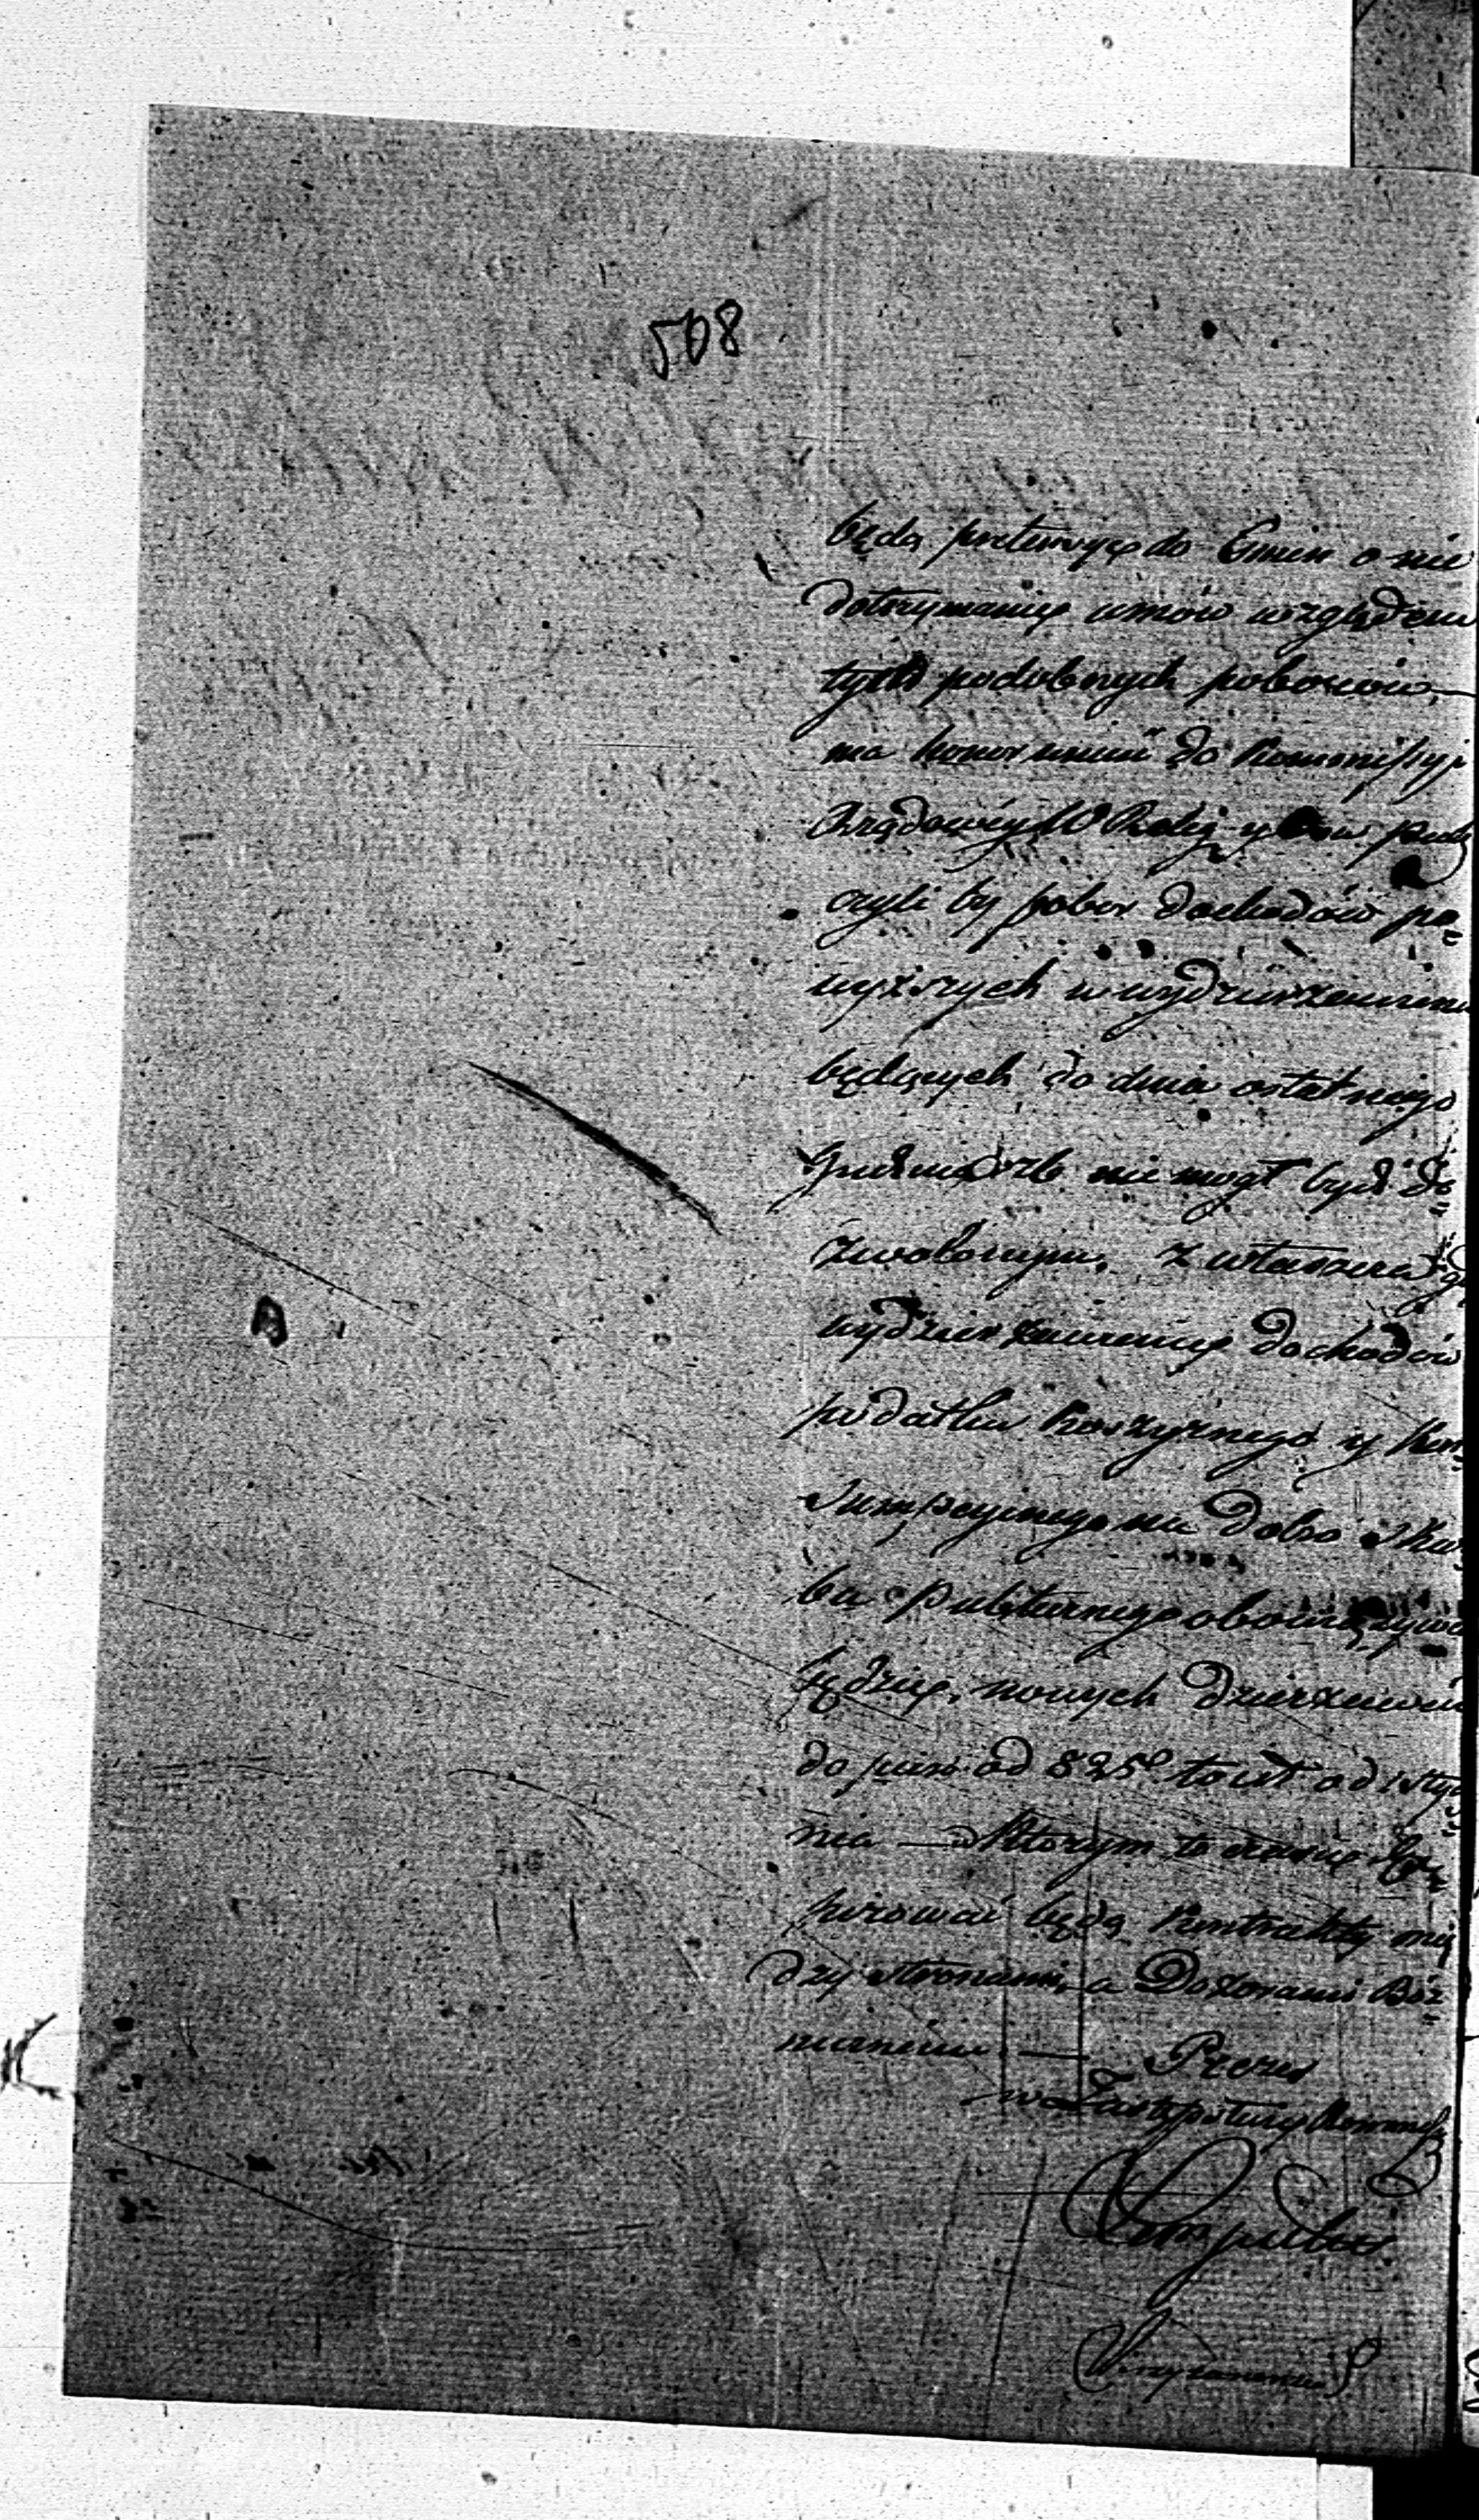 508
będą pretensye do Gmin o nie
dotrzymanie umów względem
tych podobnych poborów, —
ma honor wnieść do Kommissyi
Rządowey W Relig. y Ośw. Publ
czyli by pobor dochodów po=
wyższych w wydzierżawieniu
będących do dnia ostatniego
Grudnia rb nie mogł bydź do=
zwolonym, z
wydzierżawienie dochodów
podatku Koszyrnego y Kon=
sumpcyinego na dobro Skar=
bu Publicznego obowiązywa
będzie, nowych dzierżawców
dopiero od 825º to iest od 1 Stycz
nia — w ktorym to czasie Ex=
pirować będą Kontrakty mię
dzy stronami, a Dozorami Boż=
niczemi. — Prezes
w Zastępstwie Kommiss